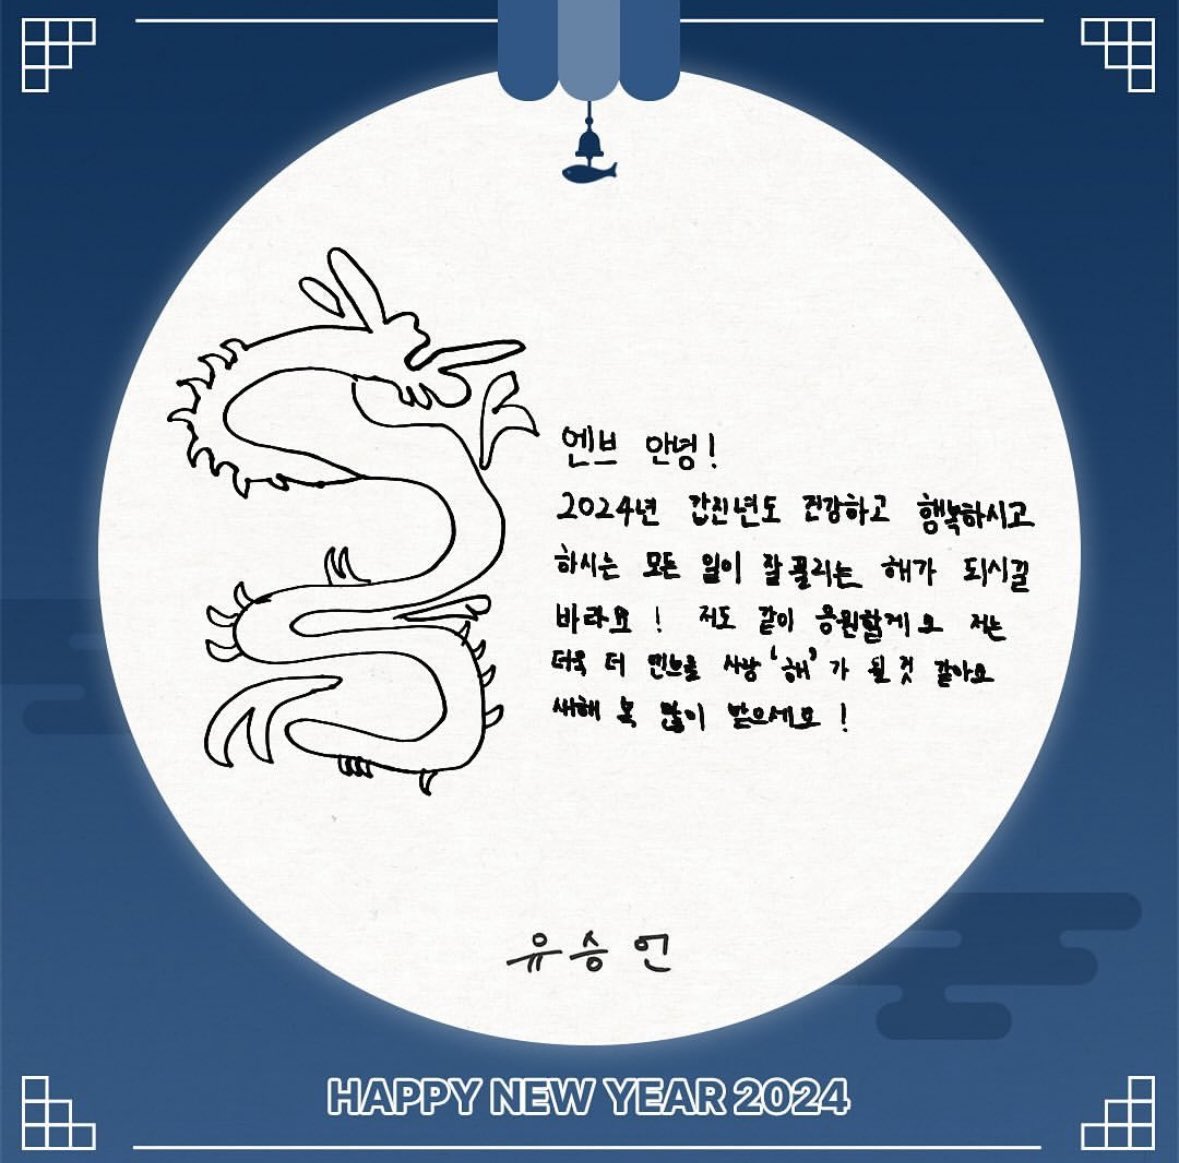 엔브 안녕!
2024년 갑진년도 건강하고 행복하시고
하시는 모든 일이 잘 풀리는 해가 되시길
바라요! 저도 같이 응원할게요 저는
더욱 더 엔브를 사랑 '해' 가 될 것 같아요
새해 복 많이 받으세요!
유승언
HAPPY NEW YEAR 2024